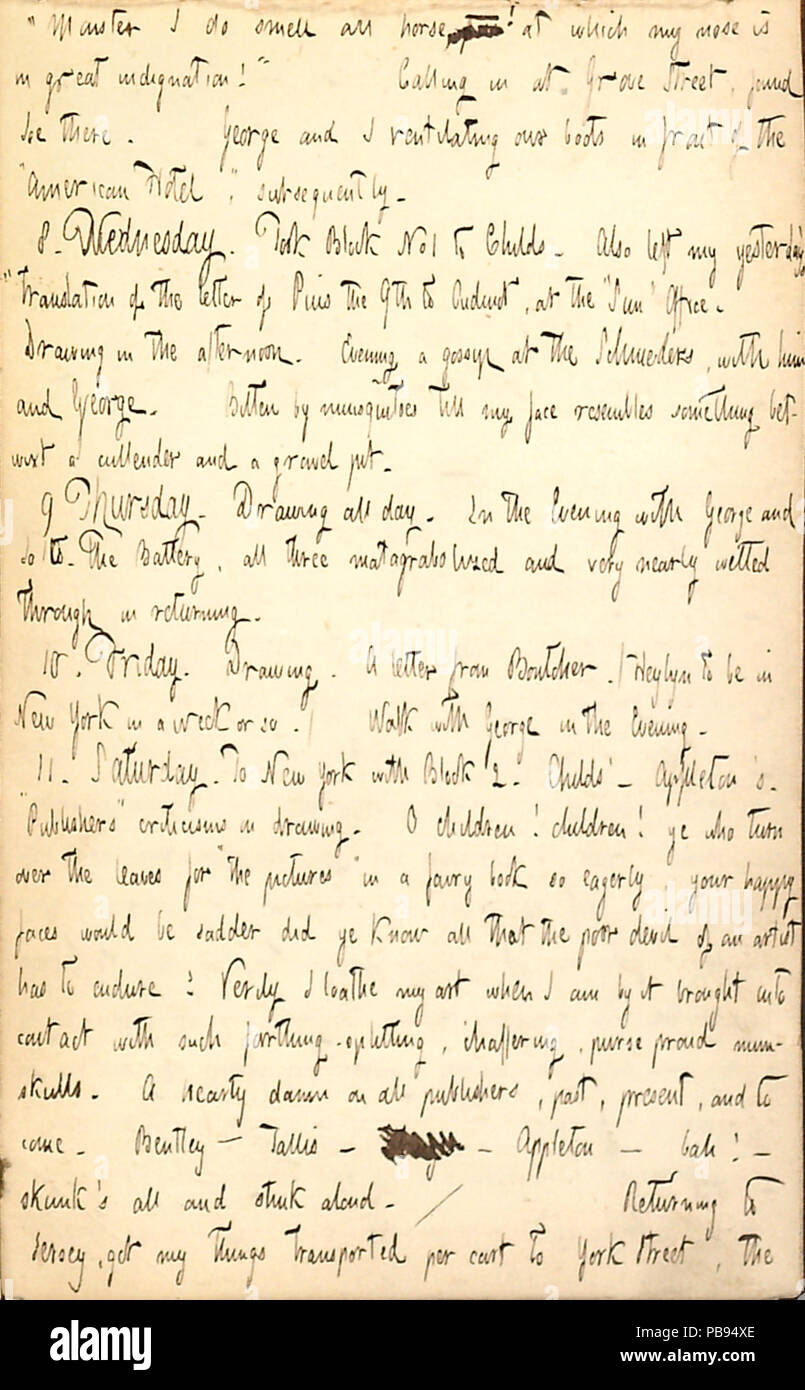 "Monster I do smell all horse [piss]! at which my nose is
in great indignation!" Calling in at Grove Street, found
Joe there. George and I ventilating our boots in front of the
"American Hotel", subsequently.
8. Wednesday. Took Block No 1 to Childs. Also left my yesterday's
"translation of the letter of Pius the 9th to Oudinot, at the "Sun" Office.
Drawing in the afternoon. Evening a gossip at the Schmeders, with him
and George. Bitten by musquitoes till my face resembles something bet-
wixt a cullender and a gravel pit.
9 Thursday. Drawing all day. In the Evening with George and
Jo to the Battery, all three matagrabolized and very nearly wetted
through in returning.
10. Friday. Drawing. A letter from Boutcher. / Heylyn to be in
New York in a week or so. / Walk with George in the Evening.
11. Saturday. To New York with Block 2. Childs' — Appleton's.
"Publishers" criticisms on drawing. O children! children! ye who turn
over the leaves for "the pictures" in a fairy book so eagerly, your happy
faces would be sadder did ye know all that the poor devil of an artist
has to endure! Verily I loathe my art when I am by it brought into
contact with such farthing-splitting, chaffering, purse proud num-
skulls. A hearty damn on all publishers, past, present, and to
come. Bentley — Tallis — — Appleton — bah! —
skunk's all and stink aloud. / Returning to
Jersey, got my things transported per cart to York Street, the
alamy
Image ID: PB94XE
www.alamy.com